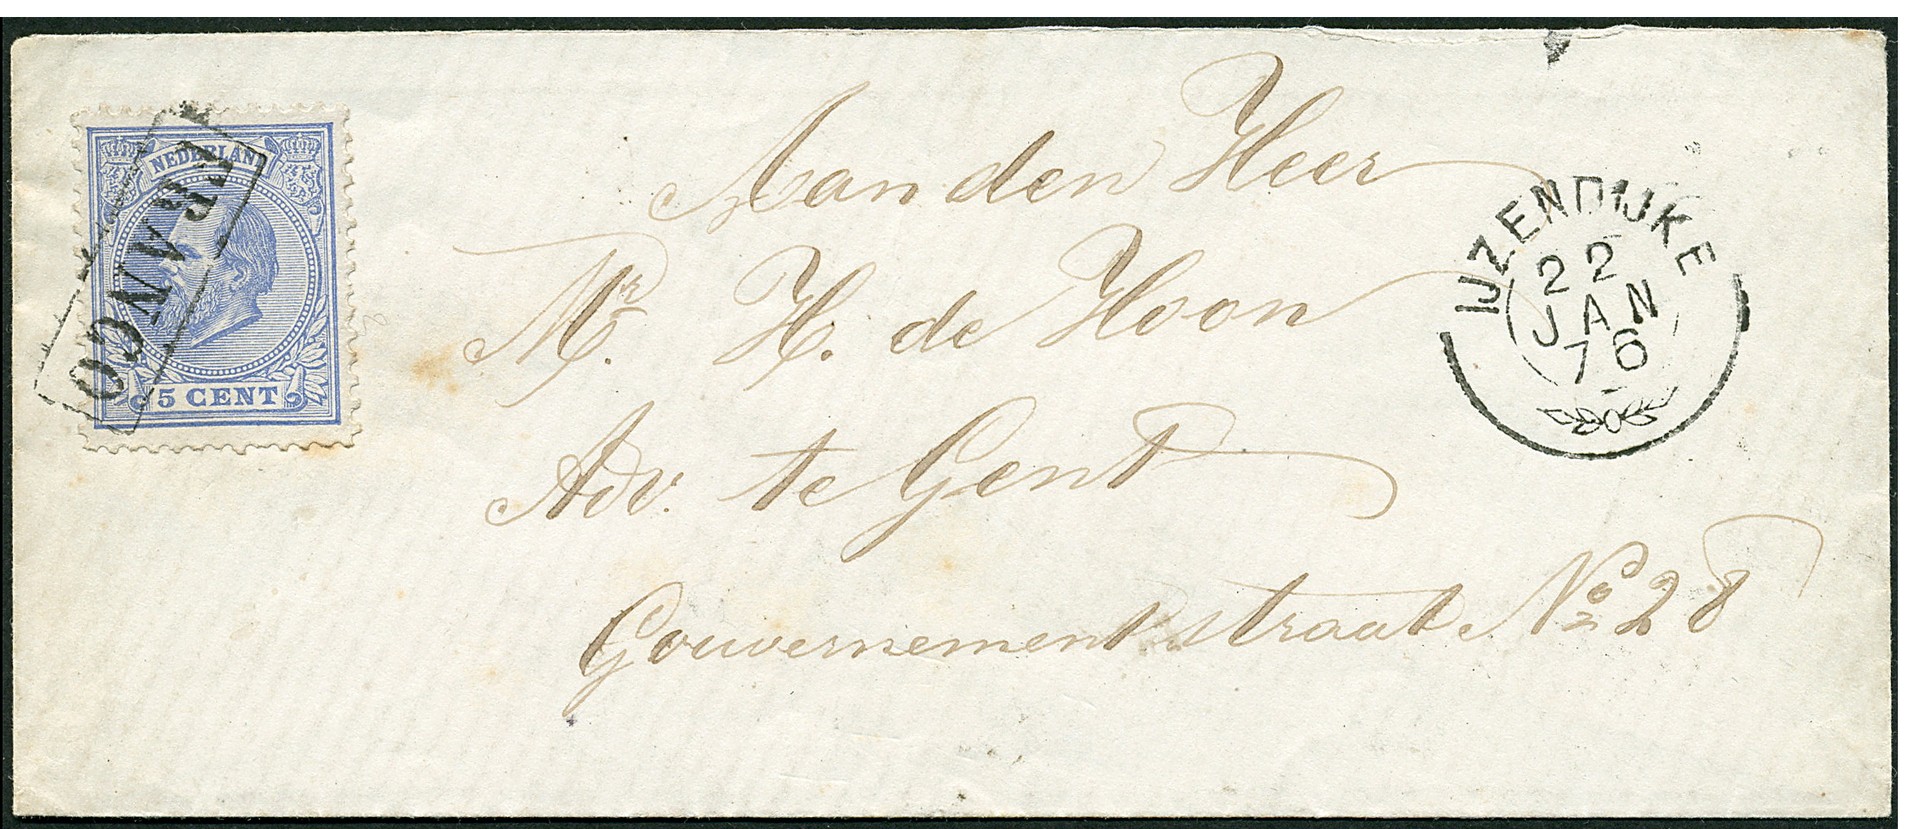 NEDERLAND
FRANCO
5 CENT
Aan den Heer
Mr. H. de Hoon
Adv. te Gent
Gouvernementstraat No 28
IJZENDIJKE
22
JAN
76